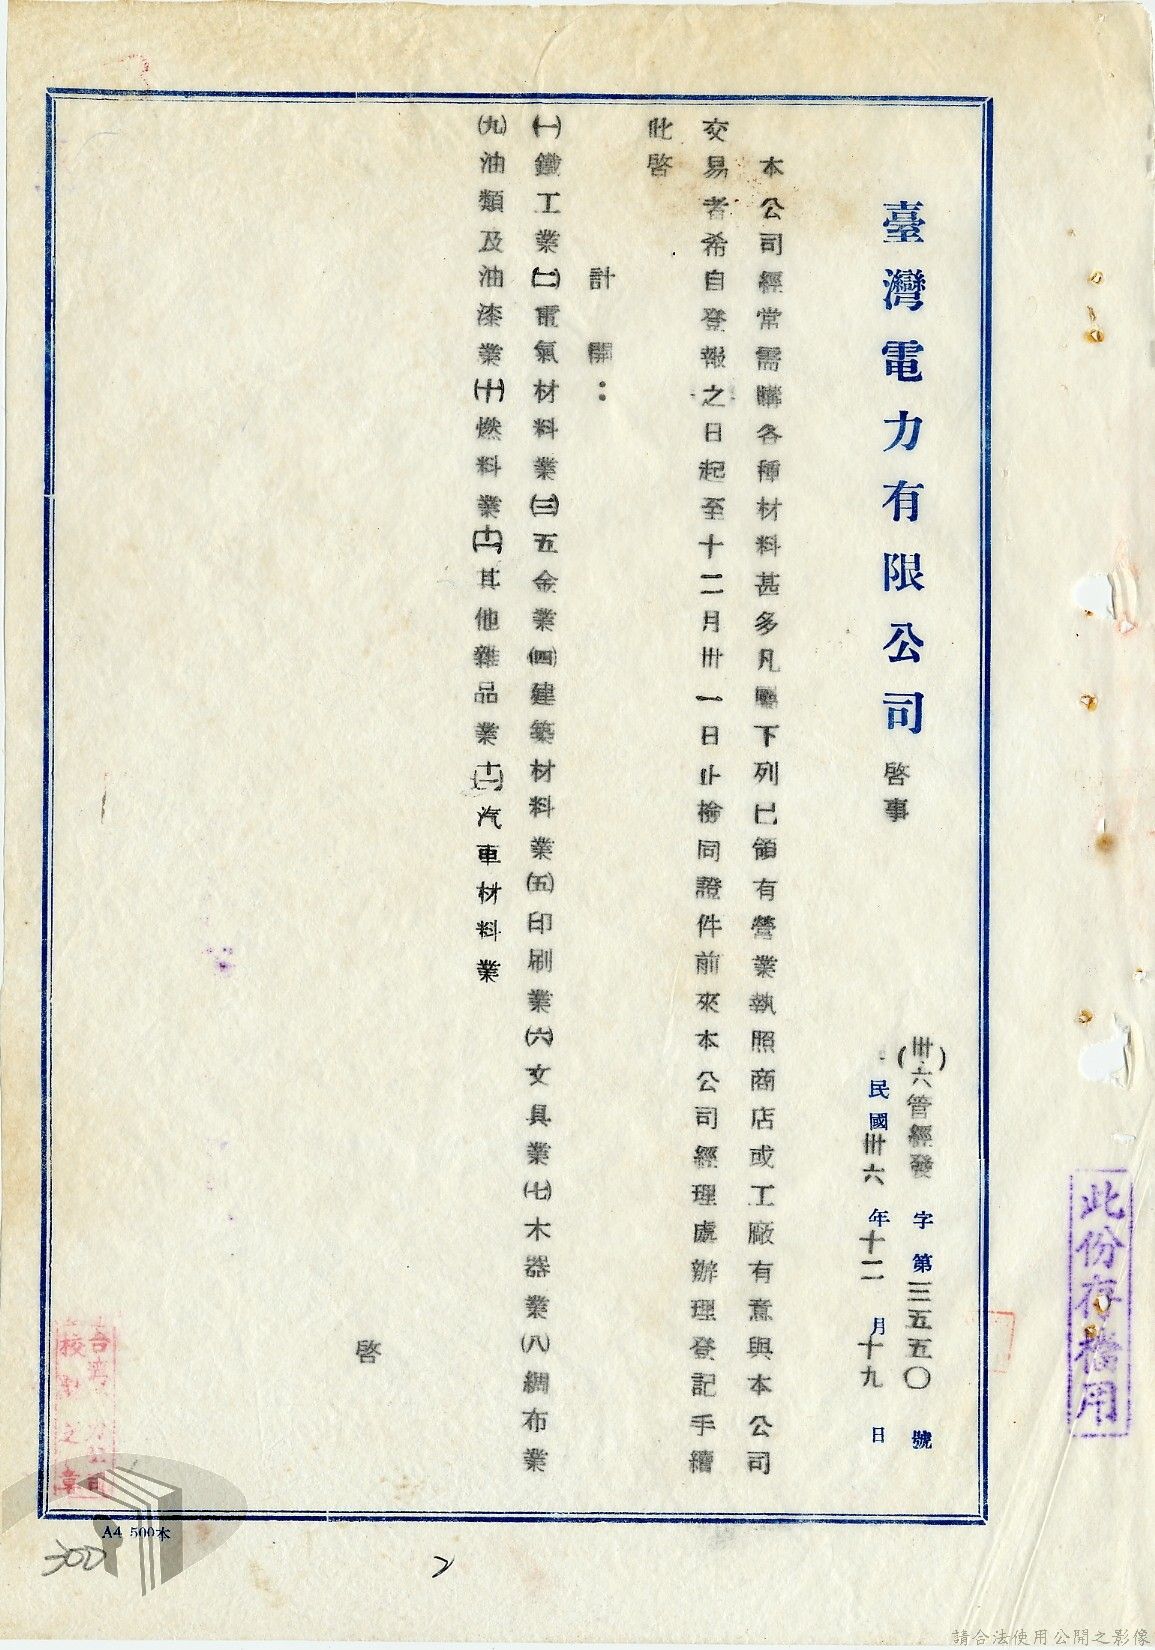 臺灣電力有限公司啓事
(卅六)管經發字第三五五〇號
民國卅六年十二月十九日
本公司經常需購各種材料甚多凡屬下列已領有營業執照商店或工廠有意與本公司
交易者希自登報之日起至十二月卅一日止檢同證件前來本公司經理處辦理登記手續
此啓
計開：
㈠鐵工業㈡電氣材料業㈢五金業㈣建築材料業㈤印刷業㈥文具業㈦木器業㈧綢布業
㈨油類及油漆業㈩燃料業(十一)其他雜品業(十二)汽車材料業
啓
此份存檔用
校中之章
A4 500本
300
2
請合法使用公開之影像